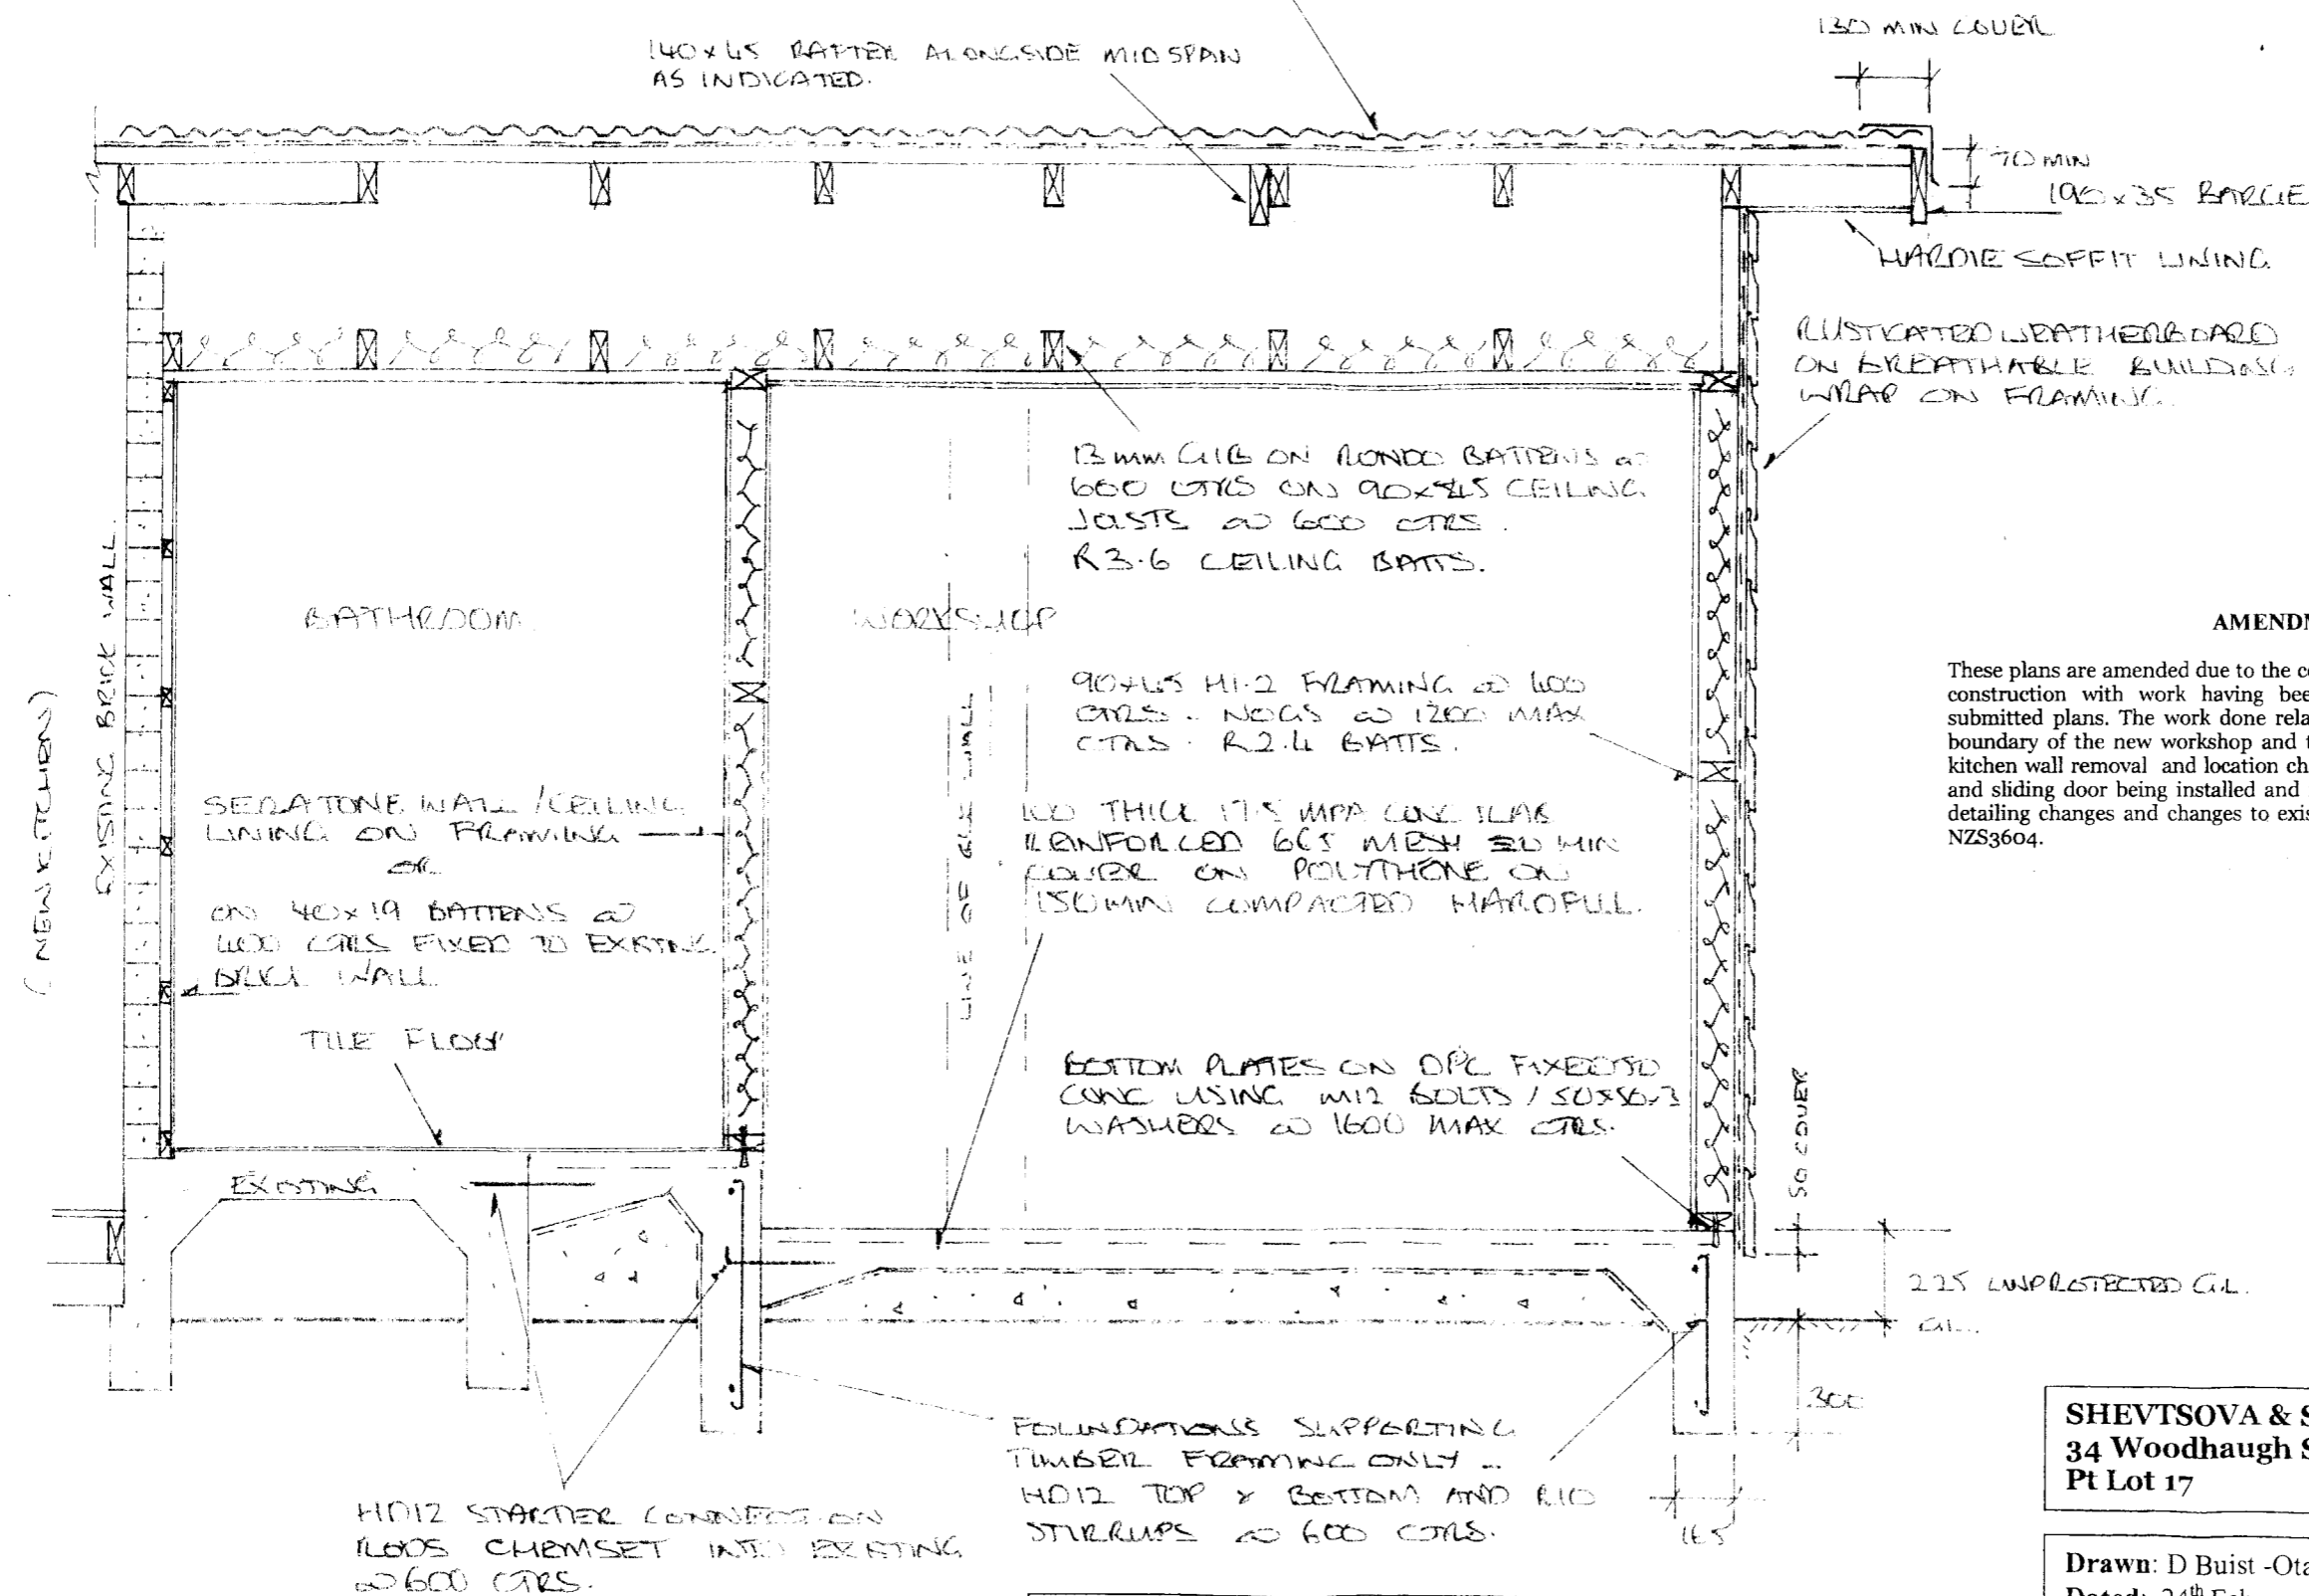 130 MIN COVER
140x45 RAFTER ALONGSIDE MIDSPAN
AS INDICATED.
70 MIN
190x35 BARGE
HARDIE SOFFIT LINING
RUSTICATED WEATHERBOARD
ON BREATHABLE BUILDING
WRAP ON FRAMING.
13mm GIB ON RONDO BATTENS @
600 CTRS ON 90x45 CEILING
JOISTS @ 600 CTRS.
R3.6 CEILING BATTS.
BATHROOM
WORKSHOP
(NEW KITCHEN)
EXISTING BRICK WALL.
LINE OF WALL
90x45 H1.2 FRAMING @ 600
CTRS. NOGS @ 1200 MAX
CTRS. R2.4 BATTS.
SERATONE WALL/CEILING
LINING ON FRAMING
OR
ON 40x19 BATTENS @
400 CTRS FIXED TO EXISTING
BRICK WALL
100 THICK 17.5 MPA CONC SLAB
REINFORCED 665 MESH MIN
COVER ON POLYTHENE ON
150MIN COMPACTED HARDFILL.
TILE FLOOR
BOTTOM PLATES ON DPC FIXED TO
CONC USING M12 BOLTS / 50x50x3
WASHERS @ 1600 MAX CTRS.
EXISTING
50 COVER
225 UNPROTECTED G.L.
G.L.
300
165
FOUNDATIONS SUPPORTING
TIMBER FRAMING ONLY -
HD12 TOP & BOTTOM AND R10
STIRRUPS @ 600 CTRS.
HD12 STARTER CONNECTION
RODS CHEMSET INTO EXISTING
@ 600 CTRS.
AMENDM
These plans are amended due to the c
construction with work having bee
submitted plans. The work done rela
boundary of the new workshop and
kitchen wall removal and location ch
and sliding door being installed and
detailing changes and changes to exis
NZS3604.
SHEVTSOVA & S
34 Woodhaugh S
Pt Lot 17
Drawn: D Buist -Ota
Dated: 24th Feb